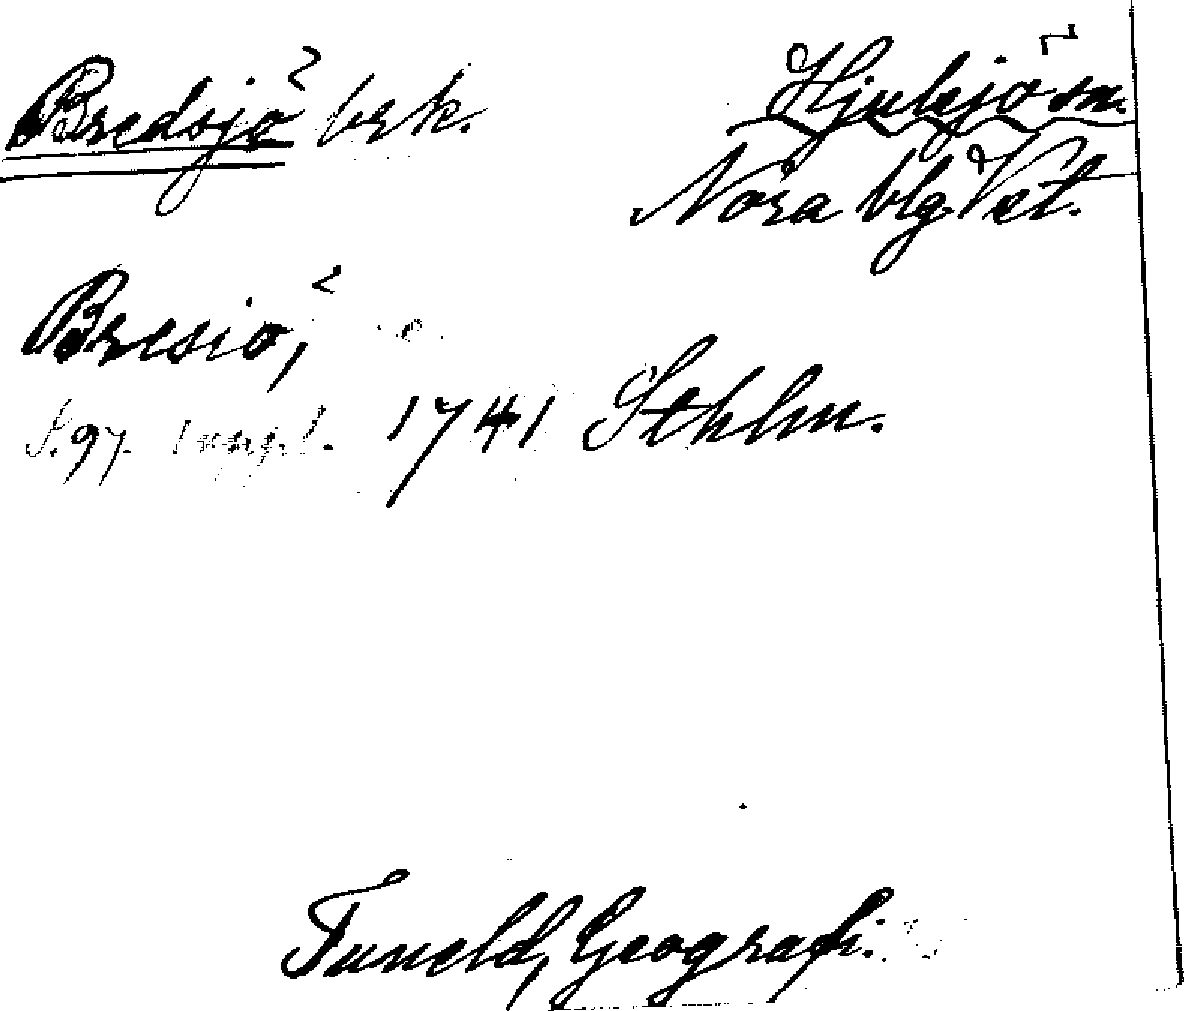 Bredsjö brk. Hjulsjö sn.
Nora blg. Vstl.
Bresiö,
S. 97. suppl. 1741 Sthlm.
Tuneld, Geografi.